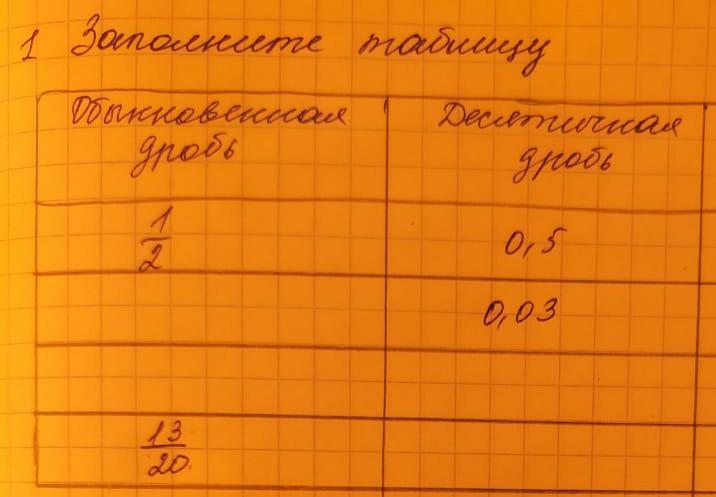 1 Заполните таблицу
Обыкновенная дробь
Десятичная дробь
1/2
0,5
0,03
13/20.